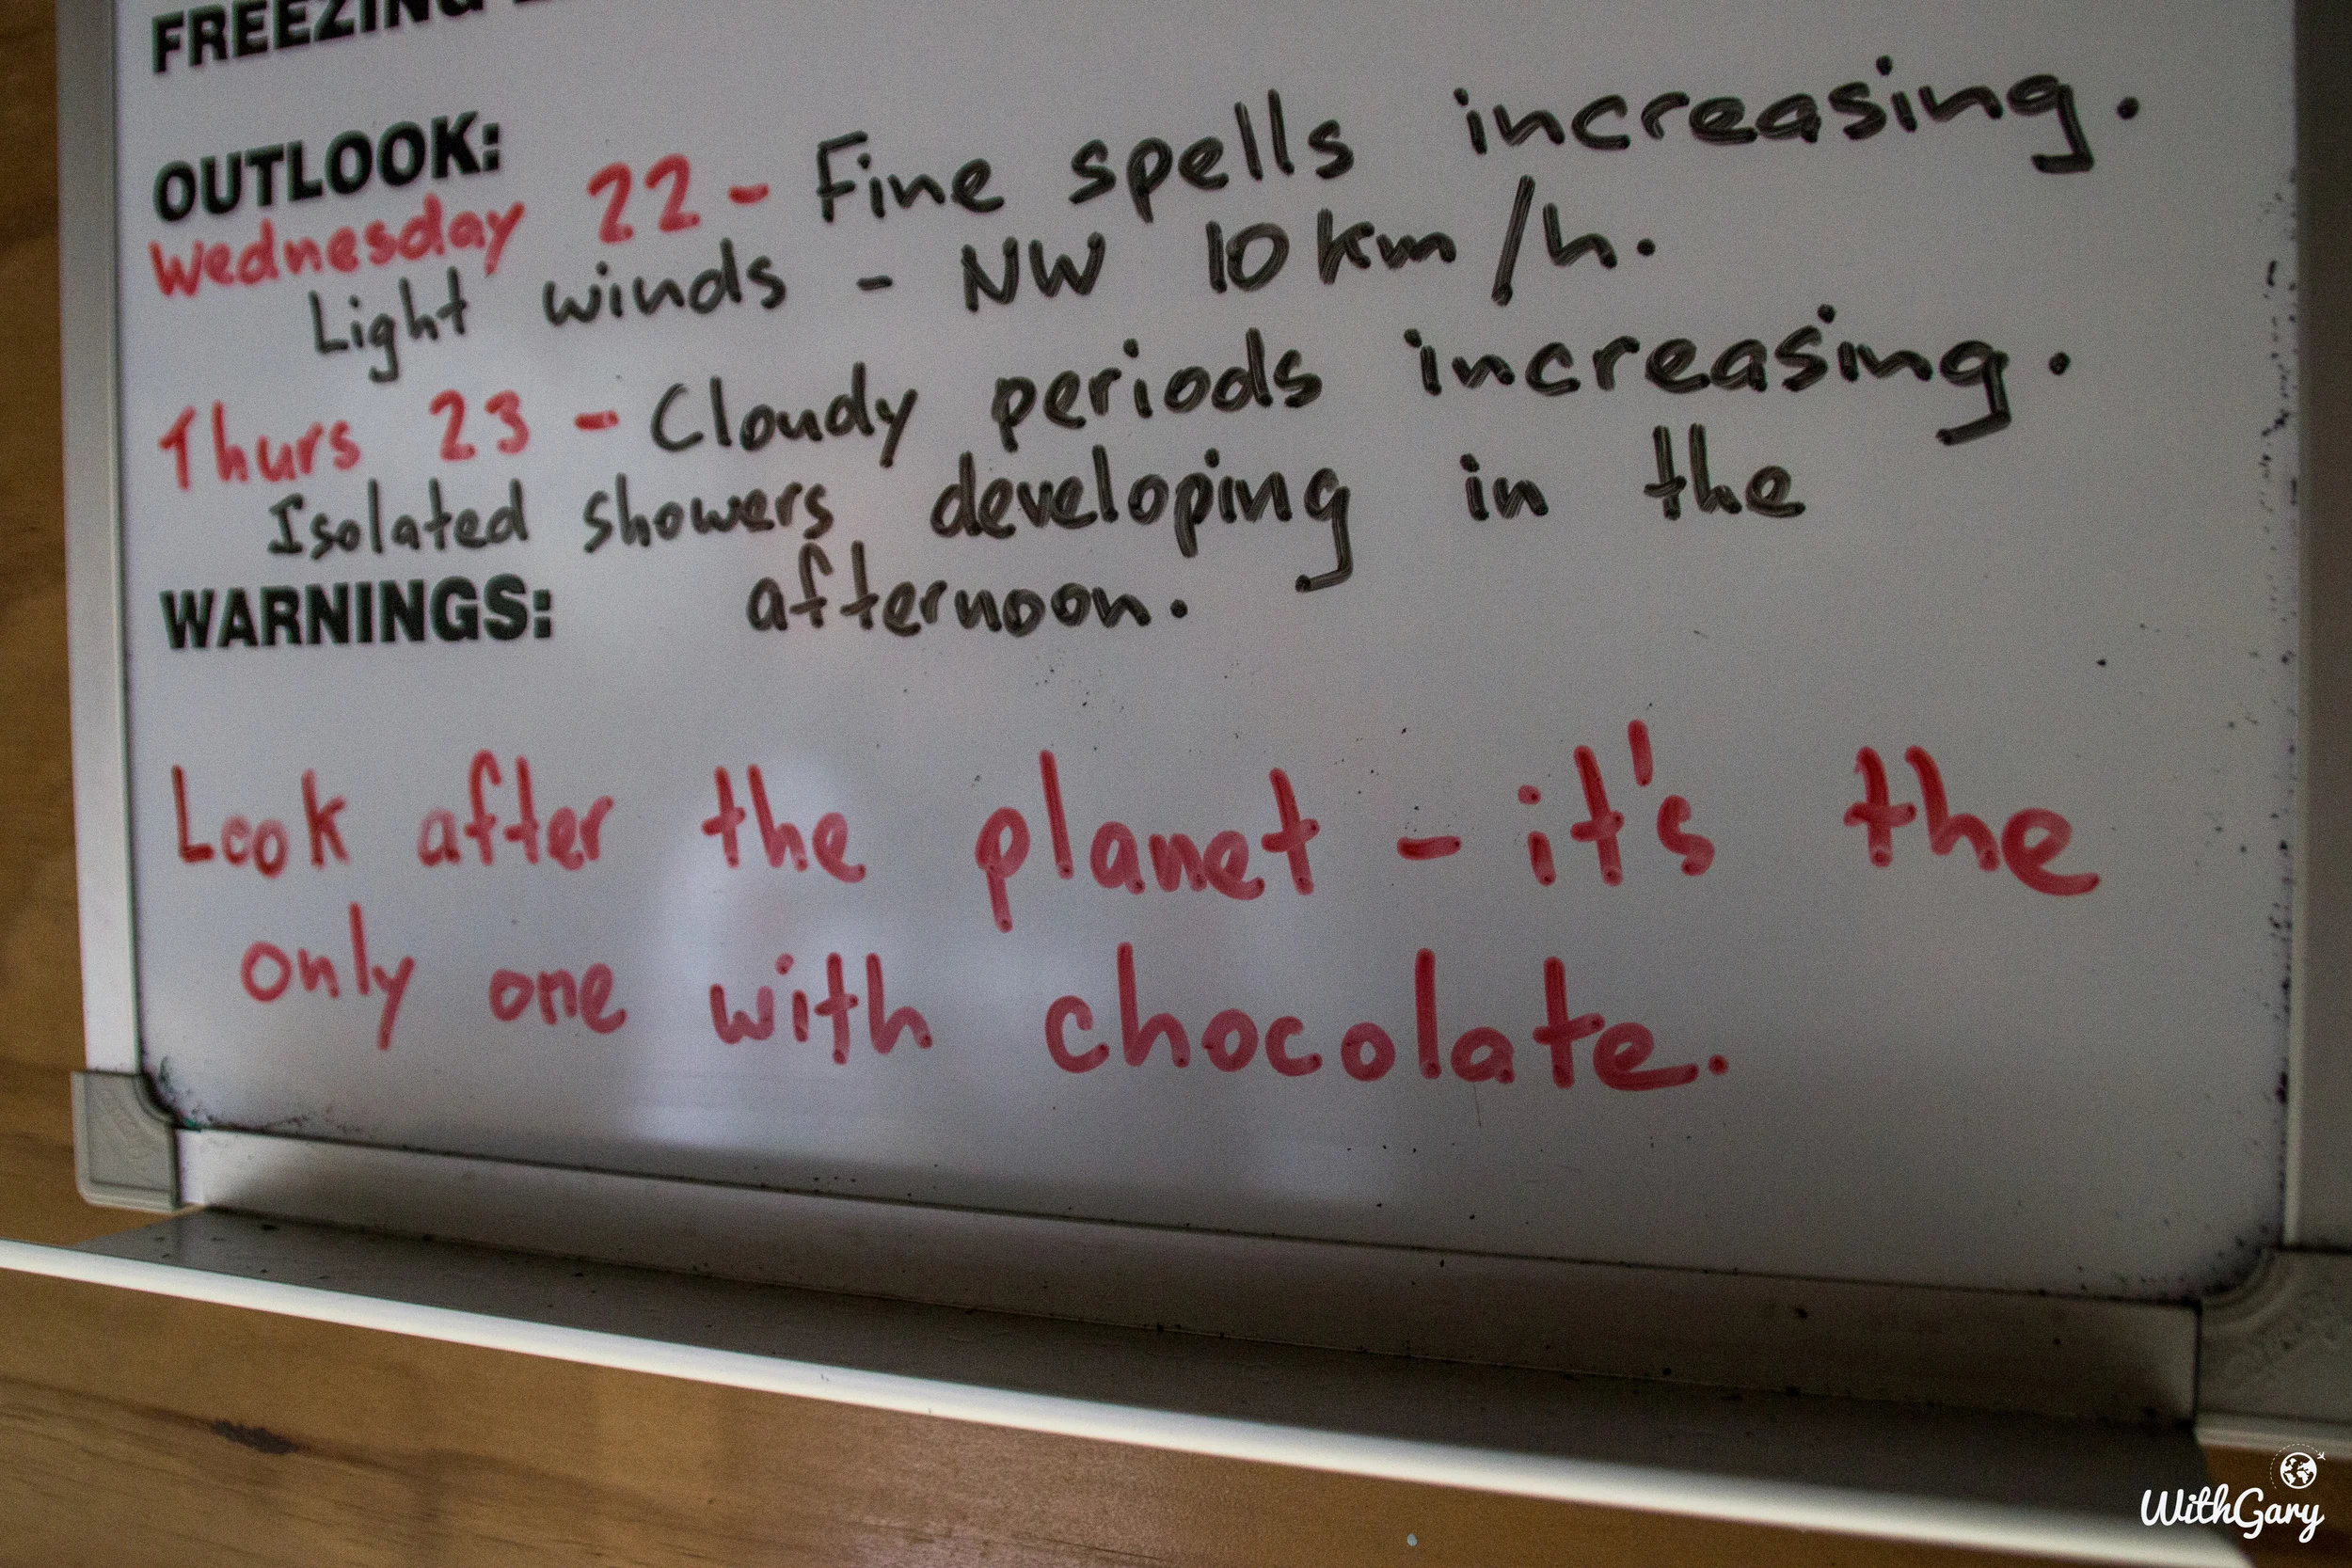 FREEZING
OUTLOOK:
Wednesday 22 - Fine spells increasing.
Light winds - NW 10 km/h.
Thurs 23 - Cloudy periods increasing.
Isolated showers developing in the
WARNINGS: afternoon.
Look after the planet - it's the
only one with chocolate.
WithGary